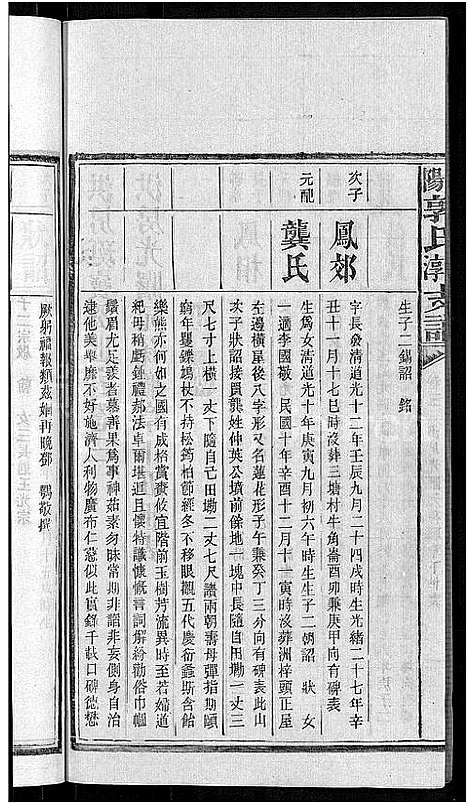 陽郭氏漳支譜
生子二錫詔 銘
次子
鳳郊
字長發清道光十二年壬辰九月二十四戌時生光緒二十七年辛
丑十一月十七巳時沒葬三塘村牛角崙酉卯兼庚甲向有碑表
元配
龔氏
生為女清道光十年庚寅九月初六午時生生子二朝詔 狀 女
一適李國敬 民國十年辛酉十二月十一寅時沒葬洲梓頭正屋
左邊橫星後八字形又名蓮花形子午兼癸丁三分向有碑表此山
次子狀詔接買龔姓仲英公墳前餘地一塊中長隨自田墈一丈三
尺七寸上橫一丈下隨自己田墈二丈七尺讚兩朝壽母彈指期頤
窮年矍鑠鳩杖不持松筠柏節經冬不移眼觀五代慶衍螽斯含飴
樂意亦何如之國有咸格賞賚攸宜階前玉樹芳流異時至若婦道
祀毋梢虧鍾禮郝法卓爾堪近且懷特識慷慨言詞解紛勸俗巾幗
鬚眉尤足羨者慕善果為事神茹素勿昧當期非謟非妄側身自治
逮他美舉靡不好施濟人利物廣布仁慈似此實錄千載口碑德懋
厥躬福報類茲姻再晚鄧 鸚敬撰